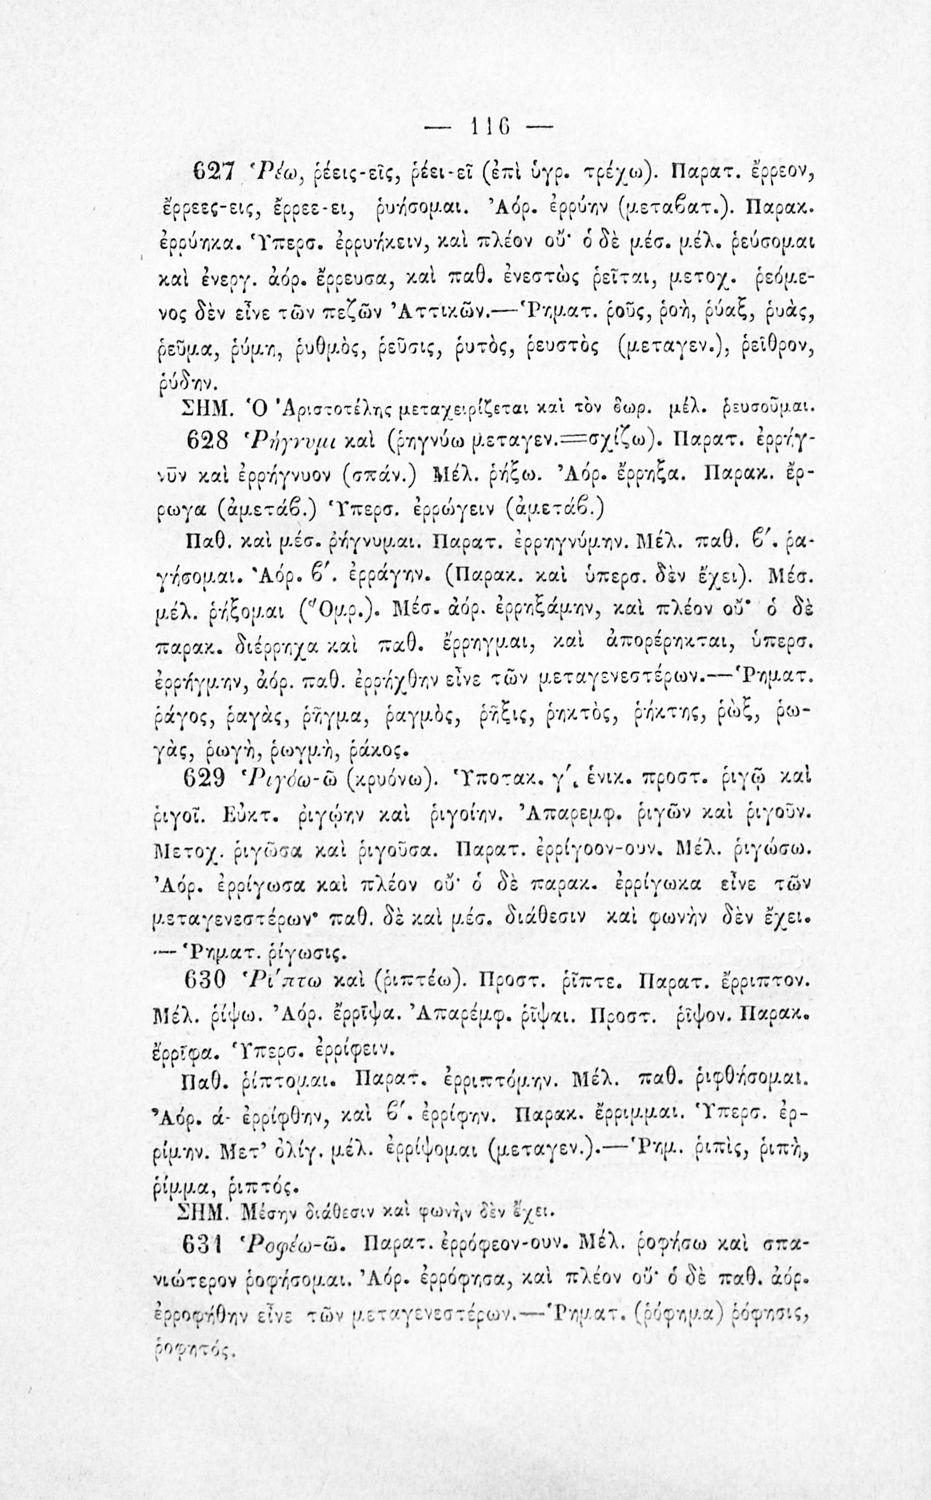 — 116 —
627 Ῥέω, ῥέεις-εῖς, ῥέει-εῖ (ἐπὶ ὑγρ. τρέχω). Παρατ. ἔρρεον,
ἔρρεες-εις, ἔρρεε-ει, ῥυήσομαι. Ἀόρ. ἐρρύην (μεταβατ.). Παρακ.
ἐρρύηκα. Ὑπερσ. ἐρρυήκειν, καὶ πλέον οὔ· ὁ δὲ μέσ. μέλ. ῥεύσομαι
καὶ ἐνεργ. ἀόρ. ἔρρευσα, καὶ παθ. ἐνεστὼς ῥεῖται, μετοχ. ῥεόμε-
νος δὲν εἶνε τῶν πεζῶν Ἀττικῶν.—Ῥηματ. ῥοῦς, ῥοὴ, ῥύαξ, ῥυὰς,
ῥεῦμα, ῥύμη, ῥυθμὸς, ῥεῦσις, ῥυτὸς, ῥευστὸς (μεταγεν.), ῥεῖθρον,
ῥύδην.
ΣΗΜ. Ὁ Ἀριστοτέλης μεταχειρίζεται καὶ τὸν δωρ. μέλ. ῥευσοῦμαι.
628 Ῥήγνυμι καὶ (ῥηγνύω μεταγεν.=σχίζω). Παρατ. ἐρρήγ-
νῦν καὶ ἐρρήγνυον (σπάν.) Μέλ. ῥήξω. Ἀόρ. ἔρρηξα. Παρακ. ἔρ-
ρωγα (ἀμετάβ.) Ὑπερσ. ἐρρώγειν (ἀμετάβ.)
Παθ. καὶ μέσ. ῥήγνυμαι. Παρατ. ἐρρηγνύμην. Μέλ. παθ. β΄. ῥα-
γήσομαι. Ἀόρ. β΄. ἐρράγην. (Παρακ. καὶ ὑπερσ. δὲν ἔχει). Μέσ.
μέλ. ῥήξομαι (Ὅμρ.). Μέσ. ἀόρ. ἐρρηξάμην, καὶ πλέον οὔ· ὁ δὲ
παρακ. διέρρηχα καὶ παθ. ἔρρηγμαι, καὶ ἀπορέρηκται, ὑπερσ.
ἐρρήγμην, ἀόρ. παθ. ἐρρήχθην εἶνε τῶν μεταγενεστέρων.—Ῥηματ.
ῥάγος, ῥαγὰς, ῥῆγμα, ῥαγμὸς, ῥῆξις, ῥηκτὸς, ῥήκτης, ῥὼξ, ῥω-
γὰς, ῥωγὴ, ῥωγμὴ, ῥάκος.
629 Ῥιγόω-ῶ (κρυόνω). Ὑποτακ. γ΄. ἑνικ. προστ. ῥιγῷ καὶ
ῥιγοῖ. Εὐκτ. ῥιγῴην καὶ ῥιγοίην. Ἀπαρεμφ. ῥιγῶν καὶ ῥιγοῦν.
Μετοχ. ῥιγῶσα καὶ ῥιγοῦσα. Παρατ. ἐρρίγοον-ουν. Μέλ. ῥιγώσω.
Ἀόρ. ἐρρίγωσα καὶ πλέον οὔ· ὁ δὲ παρακ. ἐρρίγωκα εἶνε τῶν
μεταγενεστέρων· παθ. δὲ καὶ μέσ. διάθεσιν καὶ φωνὴν δὲν ἔχει.
— Ῥηματ. ῥίγωσις.
630 Ῥίπτω καὶ (ῥιπτέω). Προστ. ῥῖπτε. Παρατ. ἔρριπτον.
Μέλ. ῥίψω. Ἀόρ. ἔρρῖψα. Ἀπαρέμφ. ῥῖψαι. Προστ. ῥῖψον. Παρακ.
ἔρρῖφα. Ὑπερσ. ἐρρίφειν.
Παθ. ῥίπτομαι. Παρατ. ἐρριπτόμην. Μέλ. παθ. ῥιφθήσομαι.
Ἀόρ. ά· ἐρρίφθην, καὶ β΄. ἐρρίφην. Παρακ. ἔρριμμαι. Ὑπερσ. ἐρ-
ρίμην. Μετ’ ὀλίγ. μέλ. ἐρρίψομαι (μεταγεν.).—Ῥημ. ῥιπὶς, ῥιπὴ,
ῥίμμα, ῥιπτός.
ΣΗΜ. Μέσην διάθεσιν καὶ φωνὴν δὲν ἔχει.
631 Ῥοφέω-ῶ. Παρατ. ἐρρόφεον-ουν. Μέλ. ῥοφήσω καὶ σπα-
νιώτερον ῥοφήσομαι. Ἀόρ. ἐρρόφησα, καὶ πλέον οὔ· ὁ δὲ παθ. ἀόρ.
ἐρροφήθην εἶνε τῶν μεταγενεστέρων.—Ῥηματ. (ῥόφημα) ῥόφησις,
ῥοφητός.